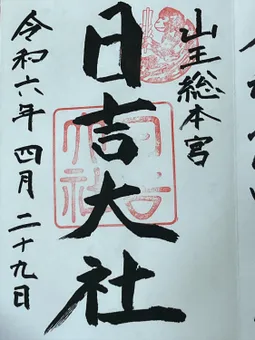 山王総本宮
日吉大社
令和六年四月二十九日
日吉大社